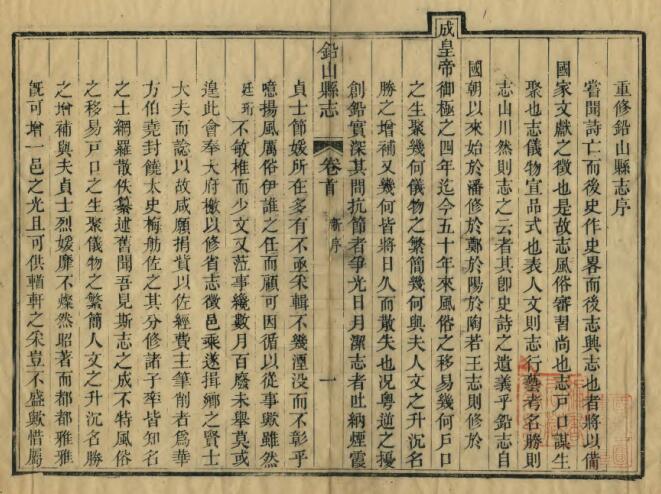 重修鉛山縣志序
嘗聞詩亡而後史作史畧而後志興志也者將以備
國家文獻之徵也是故志風俗審習尚也志戸口謀生
聚也志儀物宣品式也表人文則志行藝考名勝則
志山川然則志之云者其卽史詩之遺義乎鉛志自
國朝以來始於潘修於鄭於陽於陶若王志則修於
成皇帝御極之四年迄今五十年來風俗之移易幾何戸口
之生聚幾何儀物之繁簡幾何與夫人文之升沉名
勝之增補又幾何皆將日久而散失也况粵逆之擾
創鉛實深其間抗節者爭光日月潔志者吐納煙霞
鉛山縣志
卷首
新序
一
貞士節媛所在多有不亟采輯不幾湮没而不彰乎
噫揚風厲俗伊誰之任而顧可因循以從事歟雖然
廷珩不敏椎而少文又涖事纔數月百廢未舉莫或
遑此會奉大府檄以修省志徵邑乘遂揖鄉之賢士
大夫而諗以故咸願捐貲以佐經費主筆削者爲華
方伯堯封饒太史梅舫佐之其分修諸子率皆知名
之士網羅散佚纂述舊聞吾見斯志之成不特風俗
之移易戸口之生聚儀物之繁簡人文之升沉名勝
之增補與夫貞士烈媛靡不燦然昭著而都都雅雅
旣可增一邑之光且可供輶軒之采豈不盛歟惜屬